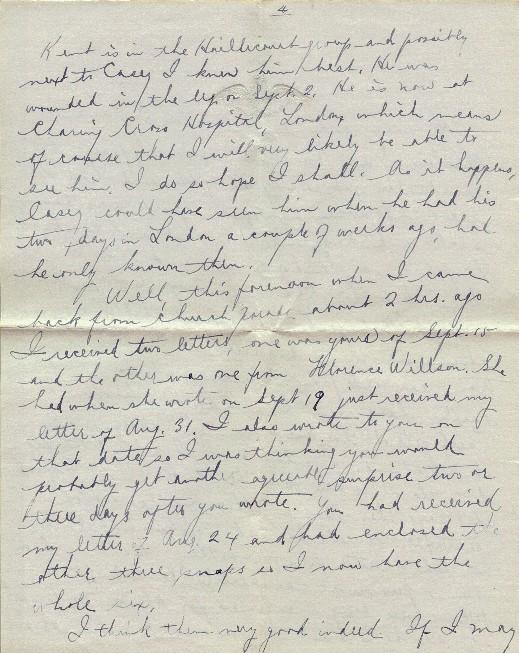 4
Kent is in the Haillicourt group and possibly
next to Casey I knew him best. He was
wounded in the leg on Sept 2. He is now at
Charing Cross Hospital, London which means
of course that I will very likely be able to
see him. I do so hope I shall. As it happens,
Casey could have seen him when he had his
two days in London a couple of weeks ago, had
he only known then.
Well, this forenoon when I came
back from church parade about 2 hrs. ago
I received two letters, one was yours of Sept. 15
and the other was one from Florence Willson. She
had when she wrote on Sept 19 just received my
letter of Aug. 31. I also wrote to you on
that date so I was thinking you would
probably get another agreeable surprise two or
three days after you wrote. You had received
my letter of Aug. 24 and had enclosed the
other three snaps so I now have the
whole six.
I think them very good indeed. If I may